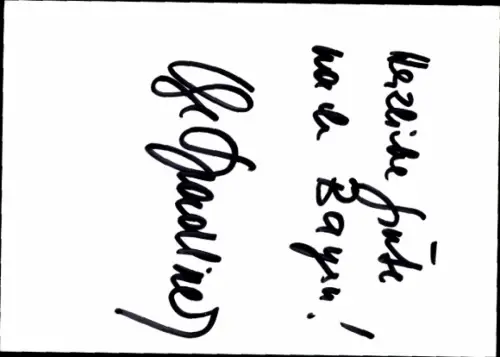 Herzliche Grüße
nach Bayern!